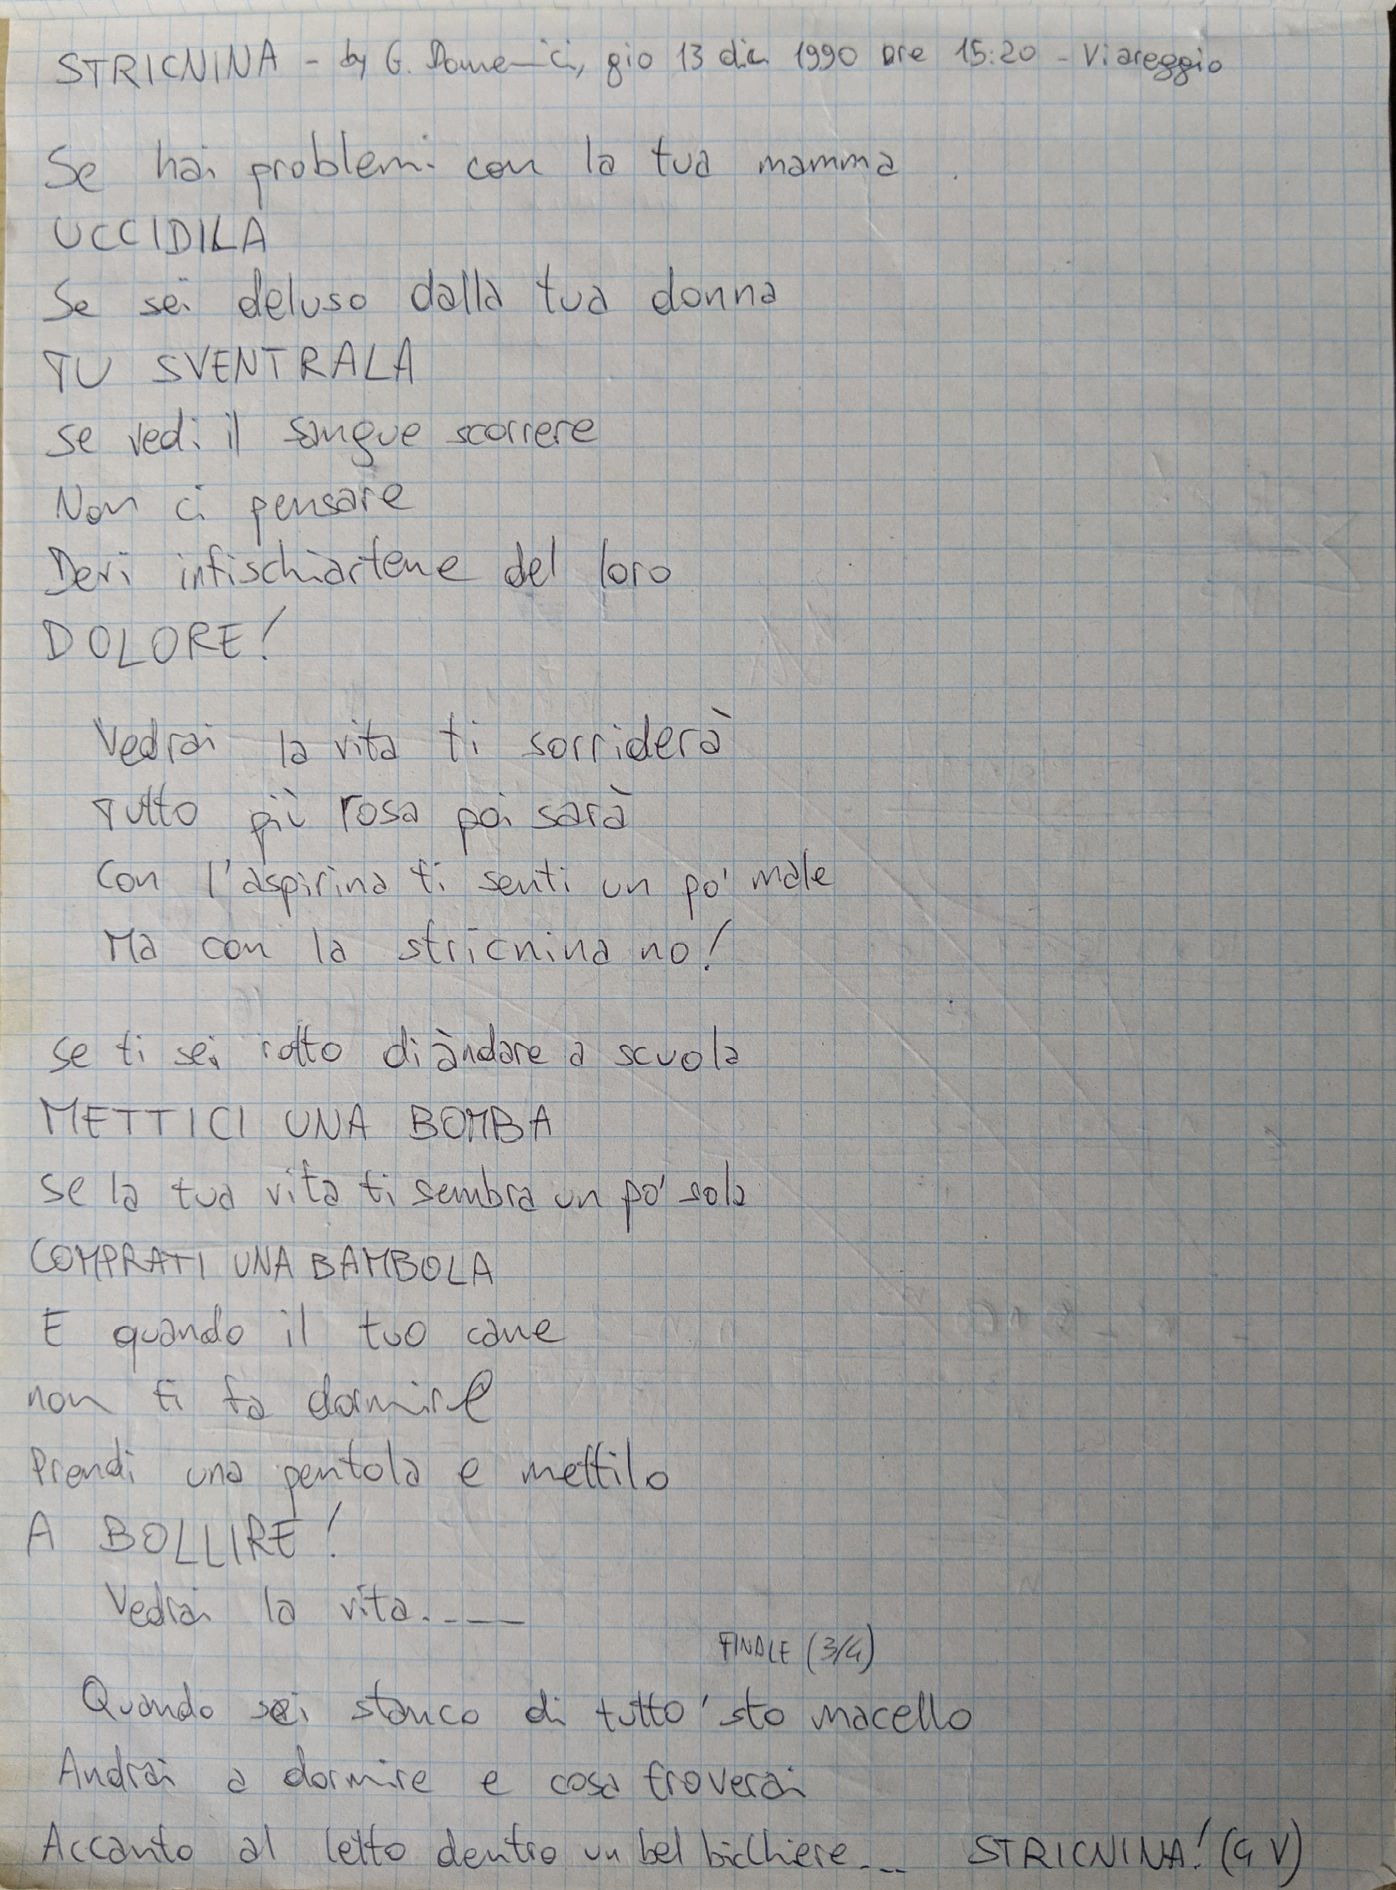 STRICNINA - by G. Domenici, gio 13 dic 1990 ore 15:20 - Viareggio
Se hai problemi con la tua mamma
UCCIDILA
Se sei deluso dalla tua donna
TU SVENTRALA
Se vedi il sangue scorrere
Non ci pensare
Devi infischiartene del loro
DOLORE!
Vedrai la vita ti sorriderà
Tutto più rosa poi sarà
Con l'aspirina ti senti un po' male
Ma con la stricnina no!
Se ti sei rotto di andare a scuola
METTICI UNA BOMBA
Se la tua vita ti sembra un po' sola
COMPRATI UNA BAMBOLA
E quando il tuo cane
non ti fa dormire
Prendi una pentola e mettilo
A BOLLIRE!
Vedrai la vita.----
FINALE (3/4)
Quando sei stanco di tutto 'sto macello
Andrai a dormire e cosa troverai
Accanto al letto dentro un bel bicchiere... STRICNINA! (4 V)